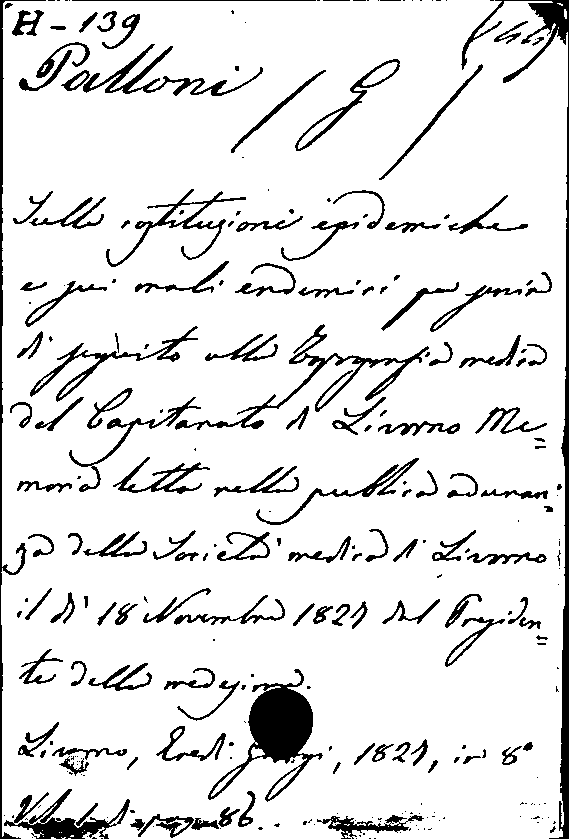 H - 139
Palloni / G /
Sulle costituzioni epidemiche
e sui mali endemici per servir
di seguito alla Topografia medica
del Capitanato di Livorno Me=
moria letta nella pubblica adunan=
za della Società medica di Livorno
il dì 18 Novembre 1824 dal Presiden=
te della medesima.
Livorno, Eredi Giorgi, 1824, in 8°
Vol. 1 di pag. 86.